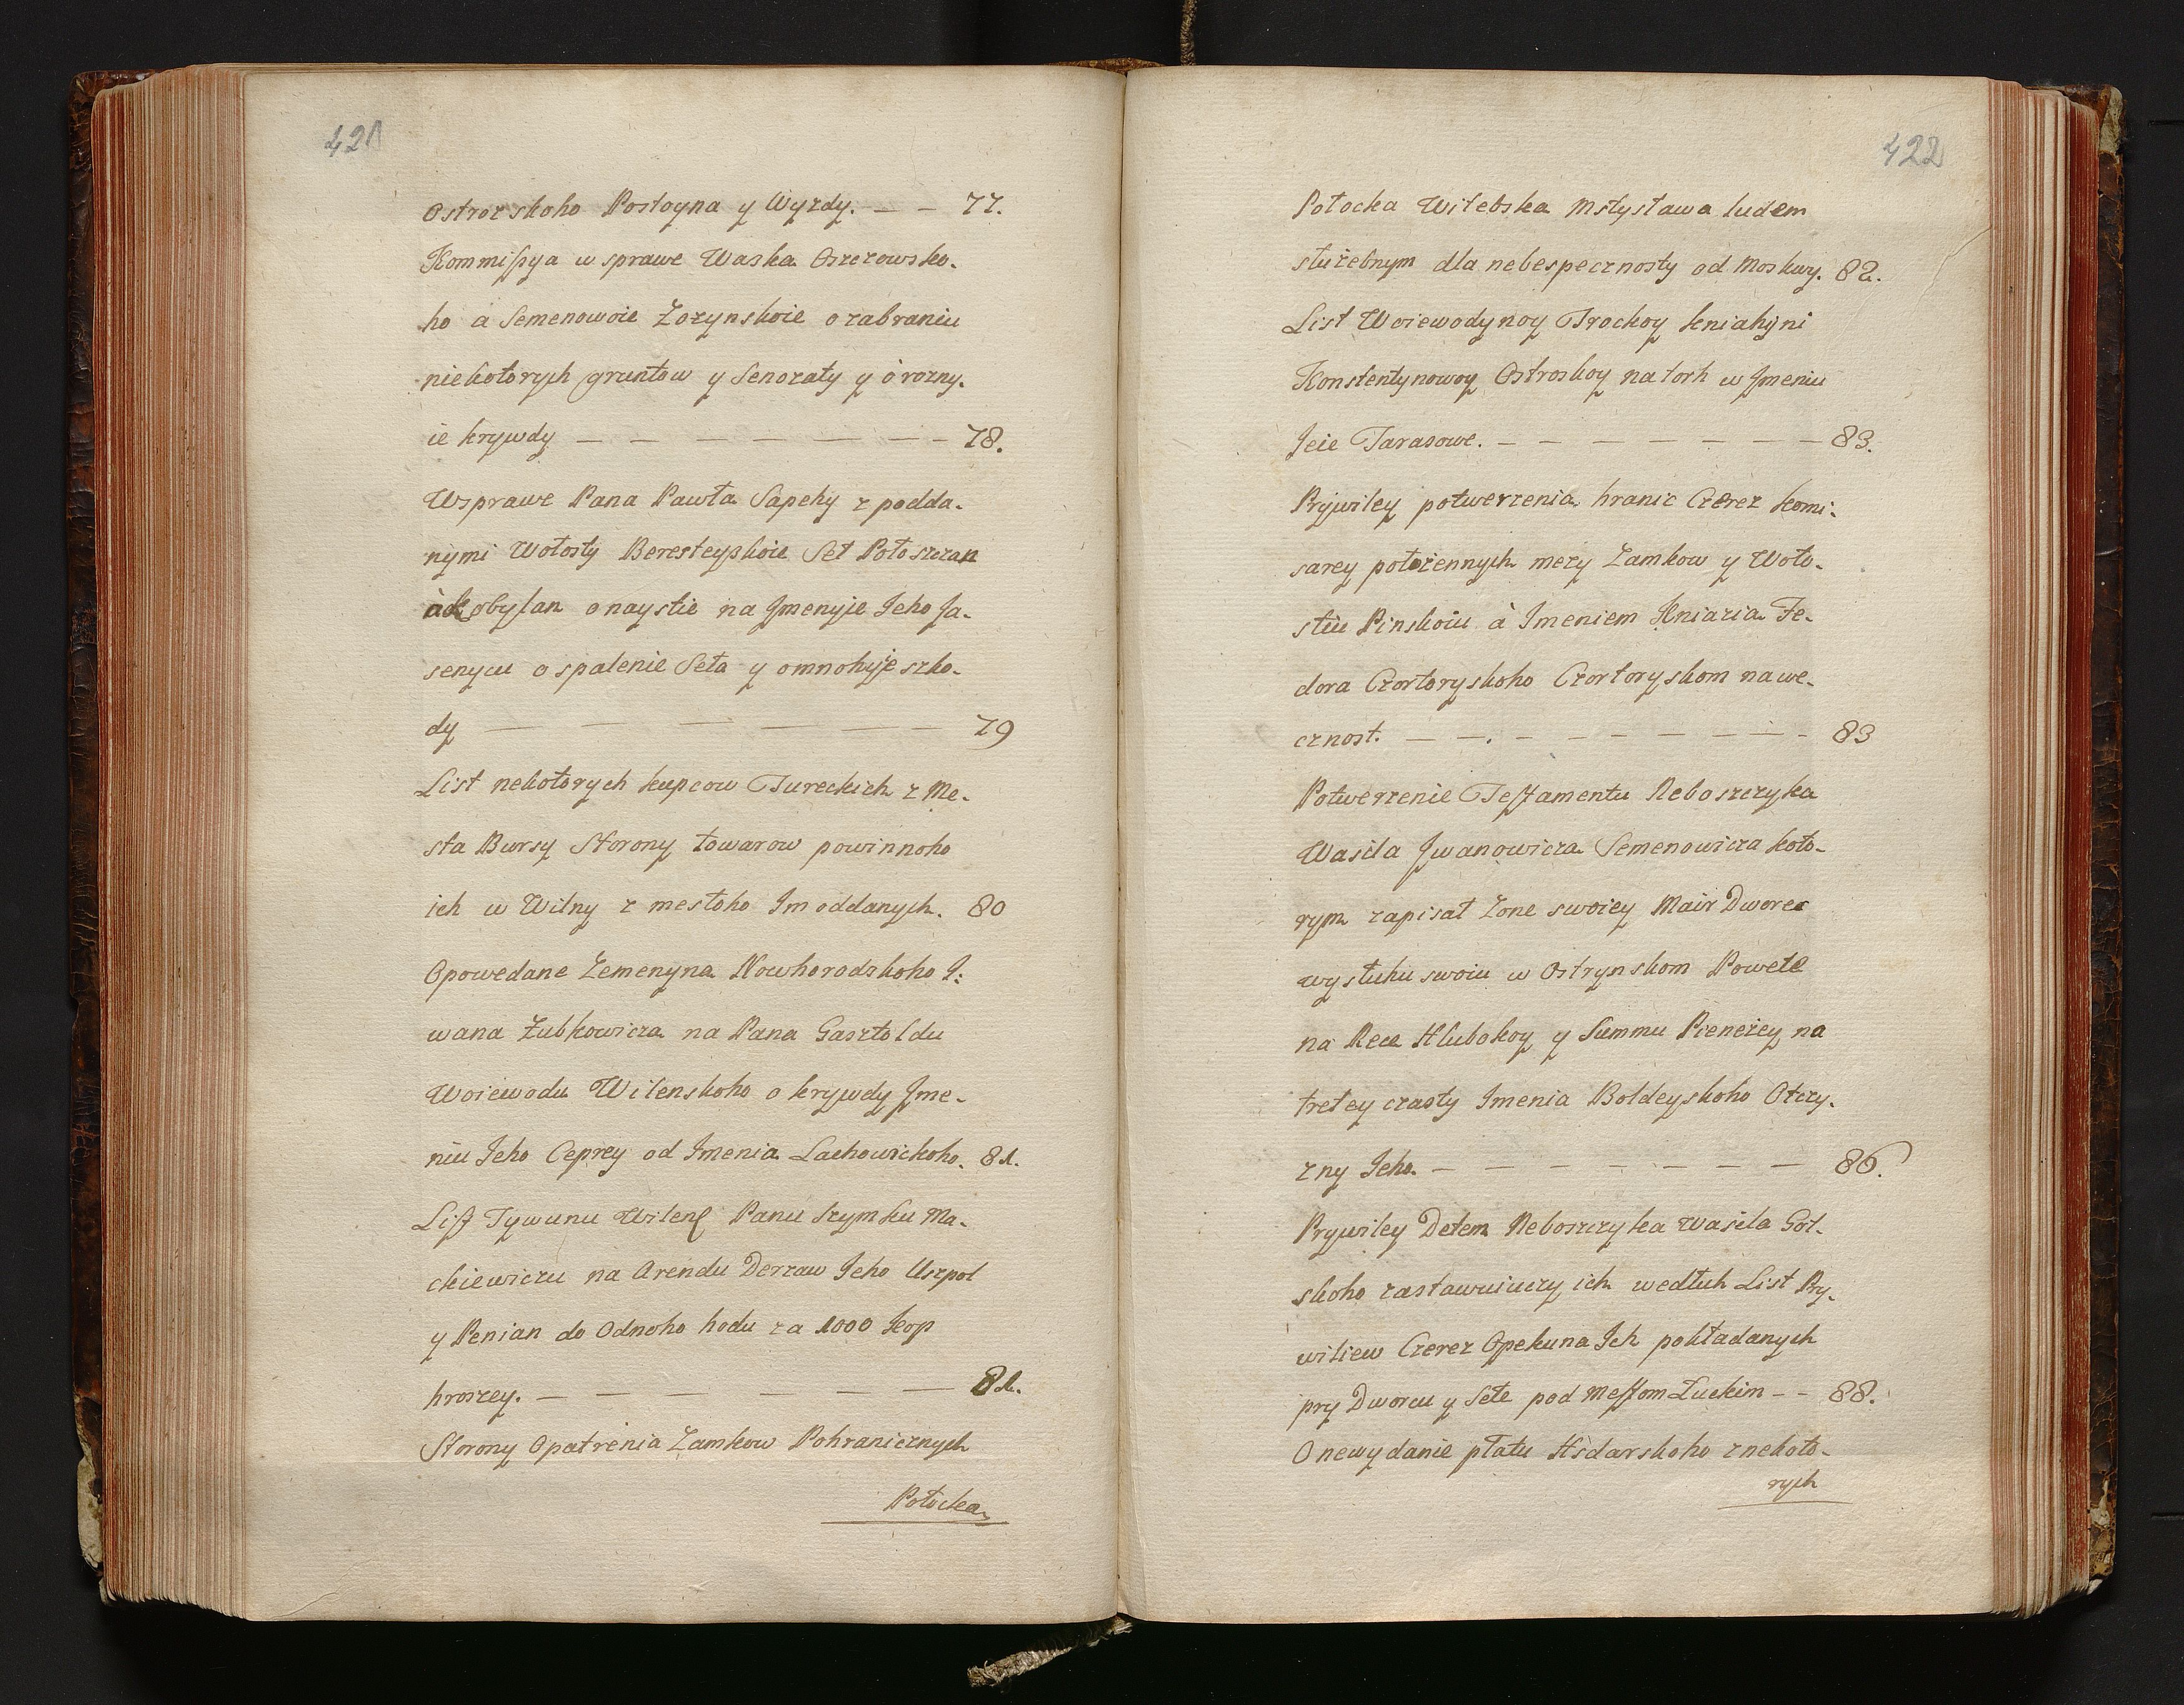 421
Ostrozskoho Postoyna y Wyzdy. — — 77.
Kommissya w sprawe Waska Oszczowsko-
ho à Semenowoie Zozynskoie o zabraniu
niekotorych gruntow y Senozaty y ò rozny-
ie krywdy — — — — — — — 78.
Wsprawe Pana Pawła Sapehy z podda-
nymi Wołosty Beresteyskoie Seł Połoszczan
à kobylan o naystie na Jmenyie Jeho Ja-
senycu o spalenie Seła y omnohyie szko-
dy — — — — — — 79
List nekotorych kupcow Tureckich z Me-
sta Bursy Storony towarow powinnoho
ich w Wilny z mestoho Im oddanych. 80
Opowedane Zemenyna Nowhorodskoho J:
wana Zubkowicza na Pana Gasztoldu
Woiewodu Wilenskoho o krywdy Jme-
niu Jeho Ceprey od Imenia Lachowickoho. 81.
List Tywunu Wilens Panu Szymku Ma-
ckiewiczu na Arendu Derzaw Jeho Uszpol
y Penian do Odnoho hodu za 1000 kop
hroszey. — — — — — — 81.
Storony Opatrenia Zamkow Pohranicznych
Połocka
422
Połocka Witebska Mstysława ludem
służebnym dla nebespecznosty od Moskwy. 82.
List Woiewodynoy Trockoy kniahyni
Konstentynowoy Ostroskoy na torh w Jmeniu
Jeie Tarasowe. — — — — — — — 83.
Prywiley potwerzenia hranic Czerez komi-
sarey położennych mezy Zamkow y Woło-
stiu Pinskoiu à Imeniem Kniazia Fe-
dora Czortoryskoho Czortoryskom na we-
cznost. — — . — — — — — — — 83
Potwerzenie Testamentu Neboszczyka
Wasila Jwanowicza Semenowicza koto-
rym zapisał Zone swoiey Mair Dworec
wysłuhu swoiu w Ostrynskom Powete
na Rece Hlubokoy y Summu Pienezey na
tretey czasty Imenia Boldeyskoho Otczy-
zny Jeho. — — — — — — — 86.
Prywiley Detem Neboszczyka Wasila Gol-
skoho zastawuiuczy ich wedłuh List Pry-
wiliew Czerez Opekuna Ich pokładanych
pry Dworcu y Sele pod Mestom Łuckim — — 88.
O newydanie płatu Hsdarskoho z nekoto-
rych